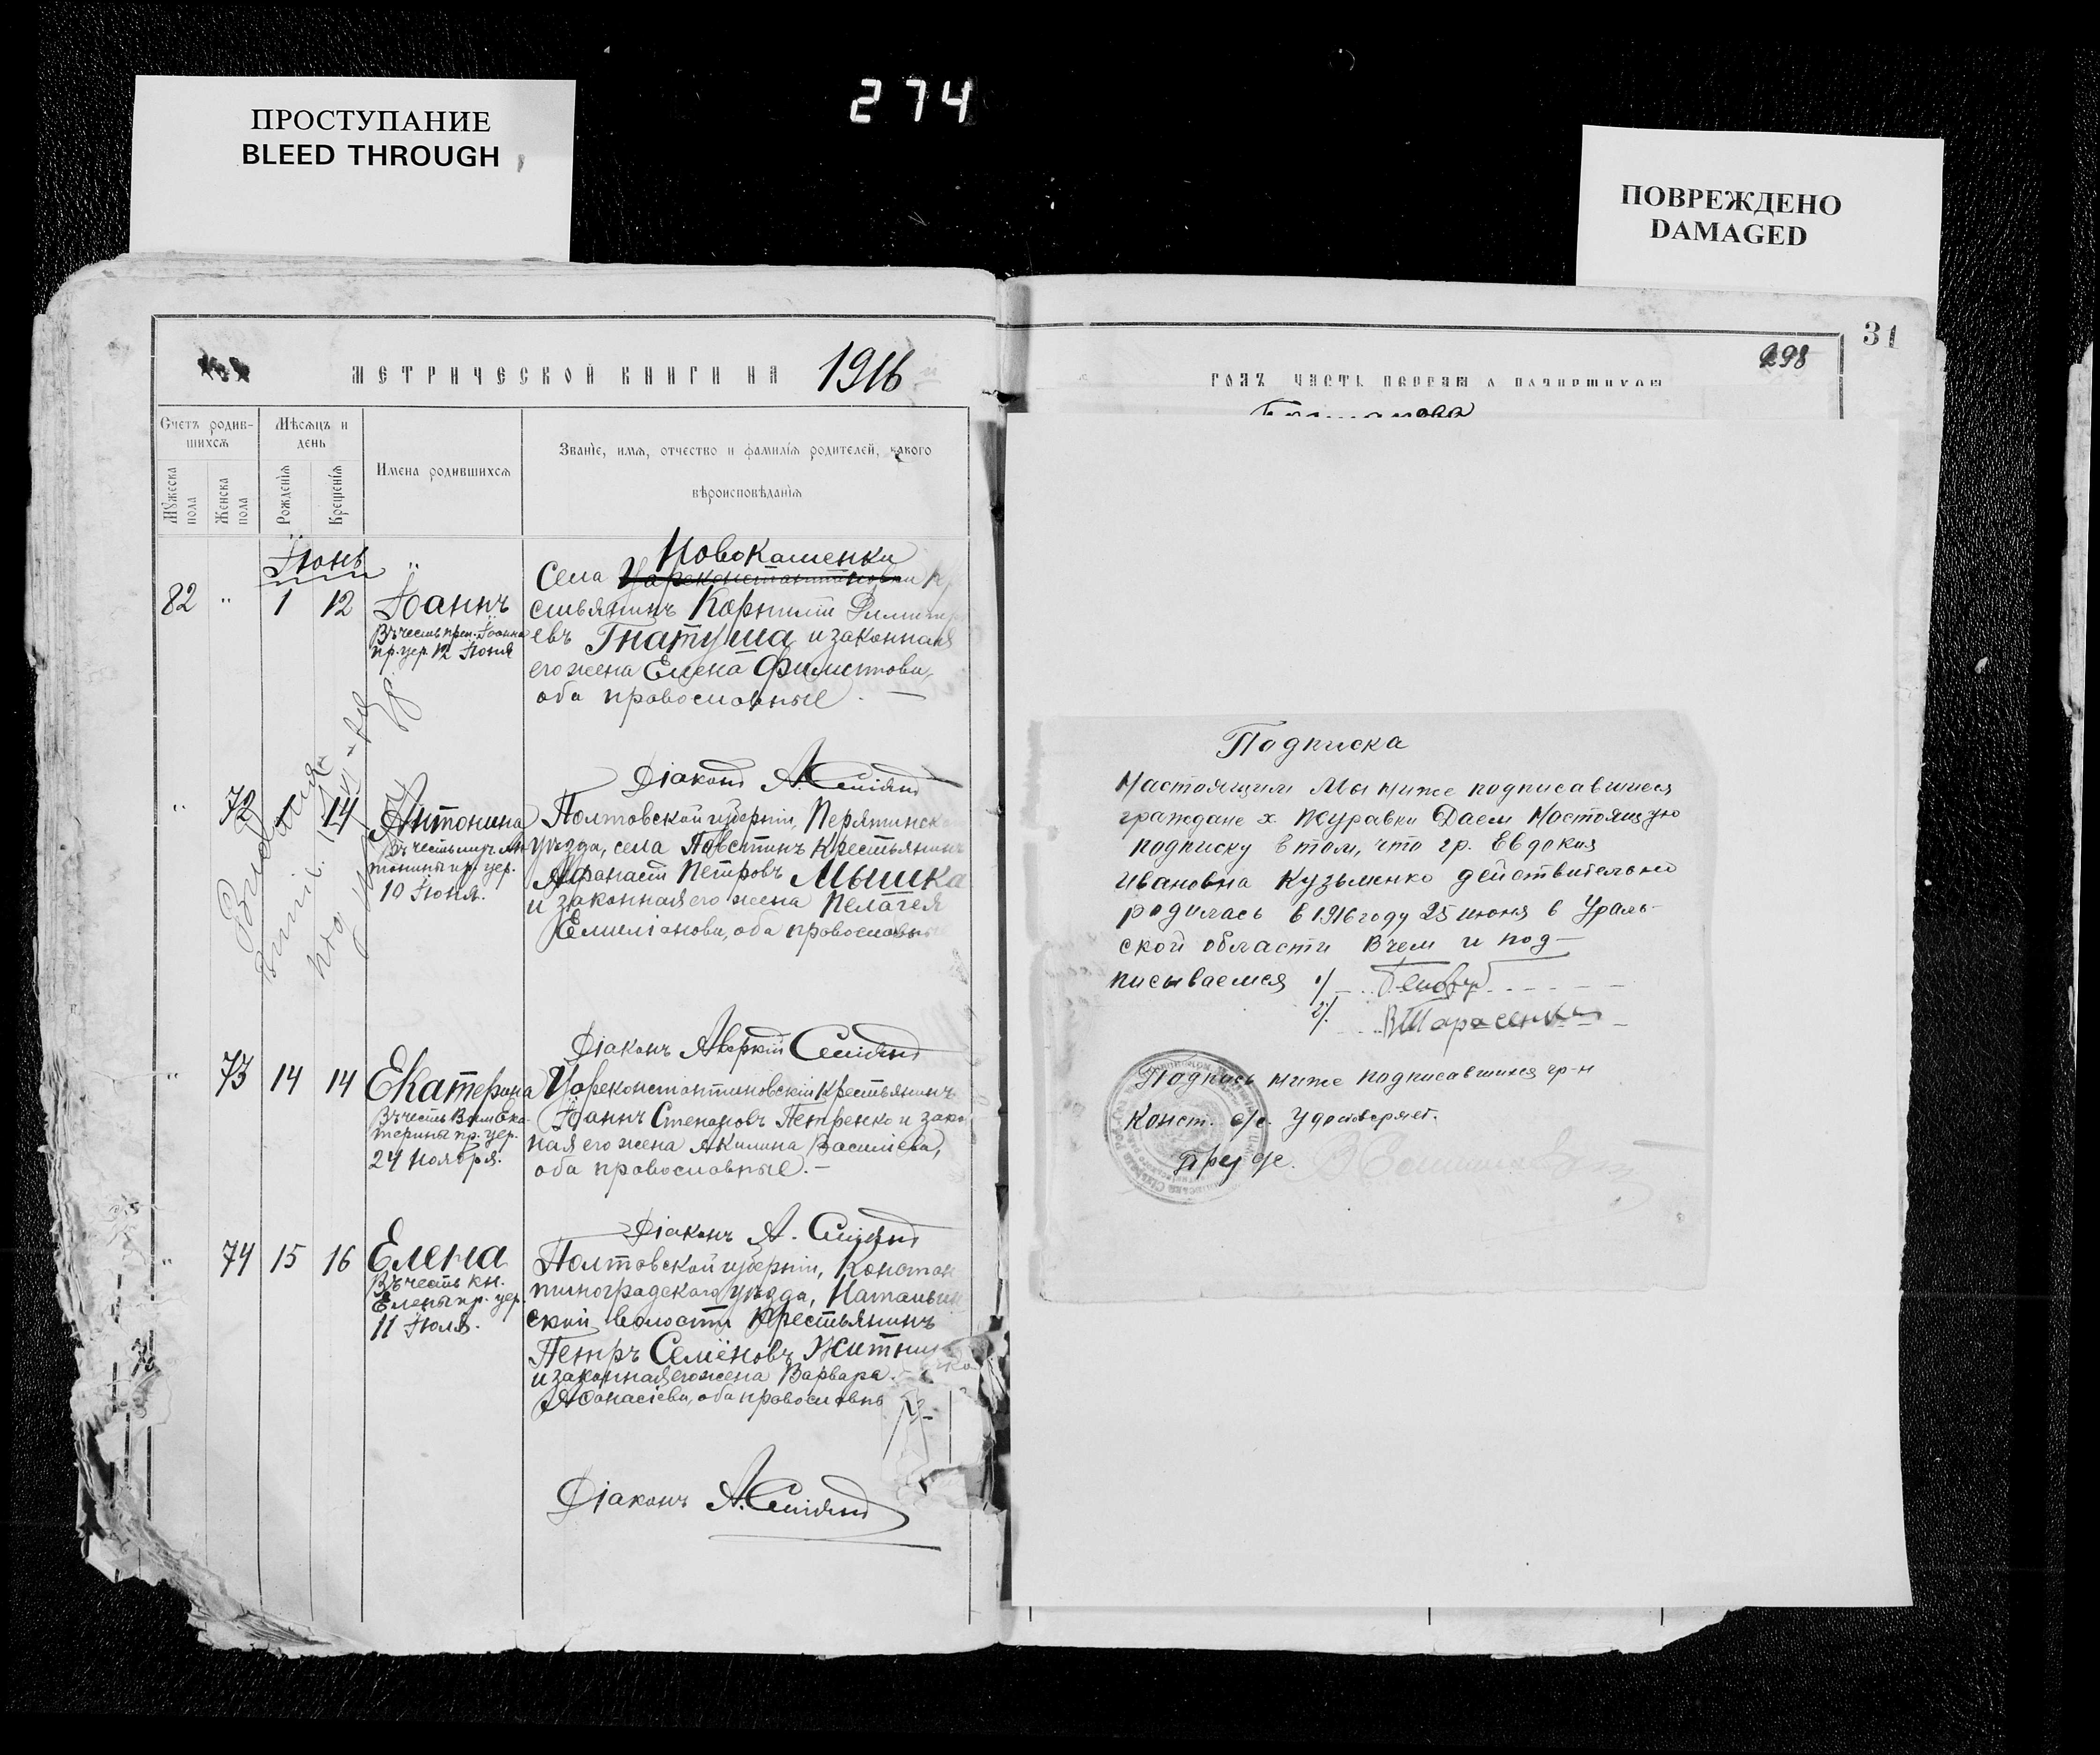 ПРОСТУПАНИЕ
BLEED THROUGH
274
ПОВРЕЖДЕНО
DAMAGED
МЕТРИЧЕСКОЙ КНИГИ НА 1916
Счетъ родив-
шихсѧ
Мужеска
пола
Женска
пола
Мѣсѧцъ и
день
Рожденїѧ
Крещенїѧ
Имена родившихсѧ
Званїе, имѧ, отчество и фамилїѧ родителей, какого
вѣроисповѣданїѧ
Іюнь
82 " 1 12 Іоаннъ
Въ честь преп. Іоанна
пр. цер. 12 Іюня
Новокаменки
Села Цареконстантиновки Кр
стьянинъ Корнилій Димитр
евъ Гнатуша и законная
его жена Елена Филиппова,
оба православные. —
Діаконъ А.
" 72 1 14 Антонина
Въ честь муч. Ан
тонины пр. цер.
10 Іюня.
Полтавской губерніи, Пирятинск
уѣзда, села Повстинъ крестьянинъ
Афанасій Петровъ Мышка
и законная его жена Пелагея
Емиліанова, оба православн
Діаконъ Аверкій
" 73 14 14 Екатерина
Въ честь Влм. Ека
терины пр. цер.
24 Ноября.
Цареконстантиновскій крестьянинъ
Іоаннъ Степановъ Петренко и закон
ная его жена Акилина Василіева,
оба православные. —
Діаконъ А.
" 74 15 16 Елена
Въ честь кн.
Елены пр. цер.
11 Іюля.
Полтавской губерніи, Констан
тиноградскаго уѣзда, Натальин
ской волости крестьянинъ
Петръ Семёновъ Житник
и законная его жена Варвара
Афанасіева, оба православны
Діаконъ А.
31
298
ГОДЪ ЧАСТЬ ПЕРВАЯ О РОДИВШИХСЯ
Подписка
Настоящим Мы ниже подписавшиеся
граждане х Журавки Даем Настоящую
подписку в том, что гр. Евдокия
Ивановна Кузьменко действительно
родилась в 1916 году 25 июня в Ураль-
ской области В чем и под-
писываемся 1/
2/. В Тарасенко
Подпись ниже подписавшихся гр-н
Конст. с/с. удостоверяет.
Пред с/с.